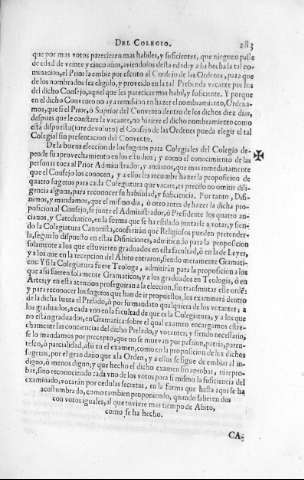 DEL COLEGIO. 283
que por mas votos parecieren mas habiles, y suficientes, que ninguno passe
de edad de veinte y cinco años, teniendolos de
minacion, el Prior la embie por escrito al Consejo de las Ordenes, para que
de los nombrados sea elegido, y proveido en la tal Prebenda vacante por los
del dicho Consejo, aquel que les pareciere mas habil, y suficiente. Y porque
en el dicho Convento no aya remission en hazer el nombramiento, Ordena-
mos, que si el Prior, ò Superior del Convento dentro de los dichos diez dias,
despues que le constare la vacante, no hiziere el dicho nombramiento como
està dispuesto el Consejo de las Ordenes pueda elegir el tal
Colegial sin presentacion del Convento.
De la buena eleccion de los sugetos para Colegiales del Colegio de-
pende su aprovechamiento en los estudios; y como el conocimiento de las
personas toca al Prior Administrador, y ancianos, que mas inmediatamente
que el Consejo los conocen, y à ellos ha
quatro sugetos para cada Colegiatura que vacare, es preciso no omitir dili-
gencia alguna, para reconocer su habilidad, y suficiencia. Por tanto, Difi-
nimos, y mandamos, que el mismo dia, ò otro antes de hazer la dicha pro-
posicion al Consejo, se junte el Administrador, ò Presidente los quatro an-
cianos, y Catedratico, en la forma que se ha estilado juntarse à votar, y sien-
do la Colegiatura Canonista, confieran que Religiosos pueden pretender-
la, segun lo dispuesto en estas Difiniciones, admitiendo para la proposicion
solamente à los que estuvieren graduados en esta facultad, ò en la de Leyes,
y à los que en la recepcion del Abito entraron, siendo meramente Gramati-
cos: Y si la Colegiatura fuere Teologa, admitiràn para la proposicion à los
que assi fueren solamente Gramaticos, y à los graduados en Teologia, ò en
Artes; y en esta atencion proseguiràn à la eleccion, sin trasmutar este orden:
y para reconocer los sugetos que han de ir propuestos, los examinarà dentro
de la dicha Junta el Prelado, ò por su mandado qualquiera de los votantes; à
los graduados, cada vno en la facultad de que es la Colegiatura, y à los que
no estan graduados, en Gramatica: sobre el qual examen encargamos estre-
chamente las conciencias del dicho Prelado, y votantes, y siendo necessario,
se lo mandamos por precepto, que no se mueva por passion, patria, paren-
tesco, ò parcialidad, assi en el examen, como en la proposicion de los dichos
sugetos, por el gran daño que à la Orden, y à ellos se sigue de embiar al in-
digno, ò menos digno; y que hecho el dicho examen sin aprobar, ni repro-
bar, sino reconociendo cada vno de los votos para sì mesmo la suficiencia del
examinado, votaràn por cedulas secretas, en la forma que hasta aqui se ha
acostumbrado, como tambien proponiendo, quando salieren dos
con votos iguales, al que tuviere mas tiempo de Abito,
como se ha hecho.
CA-